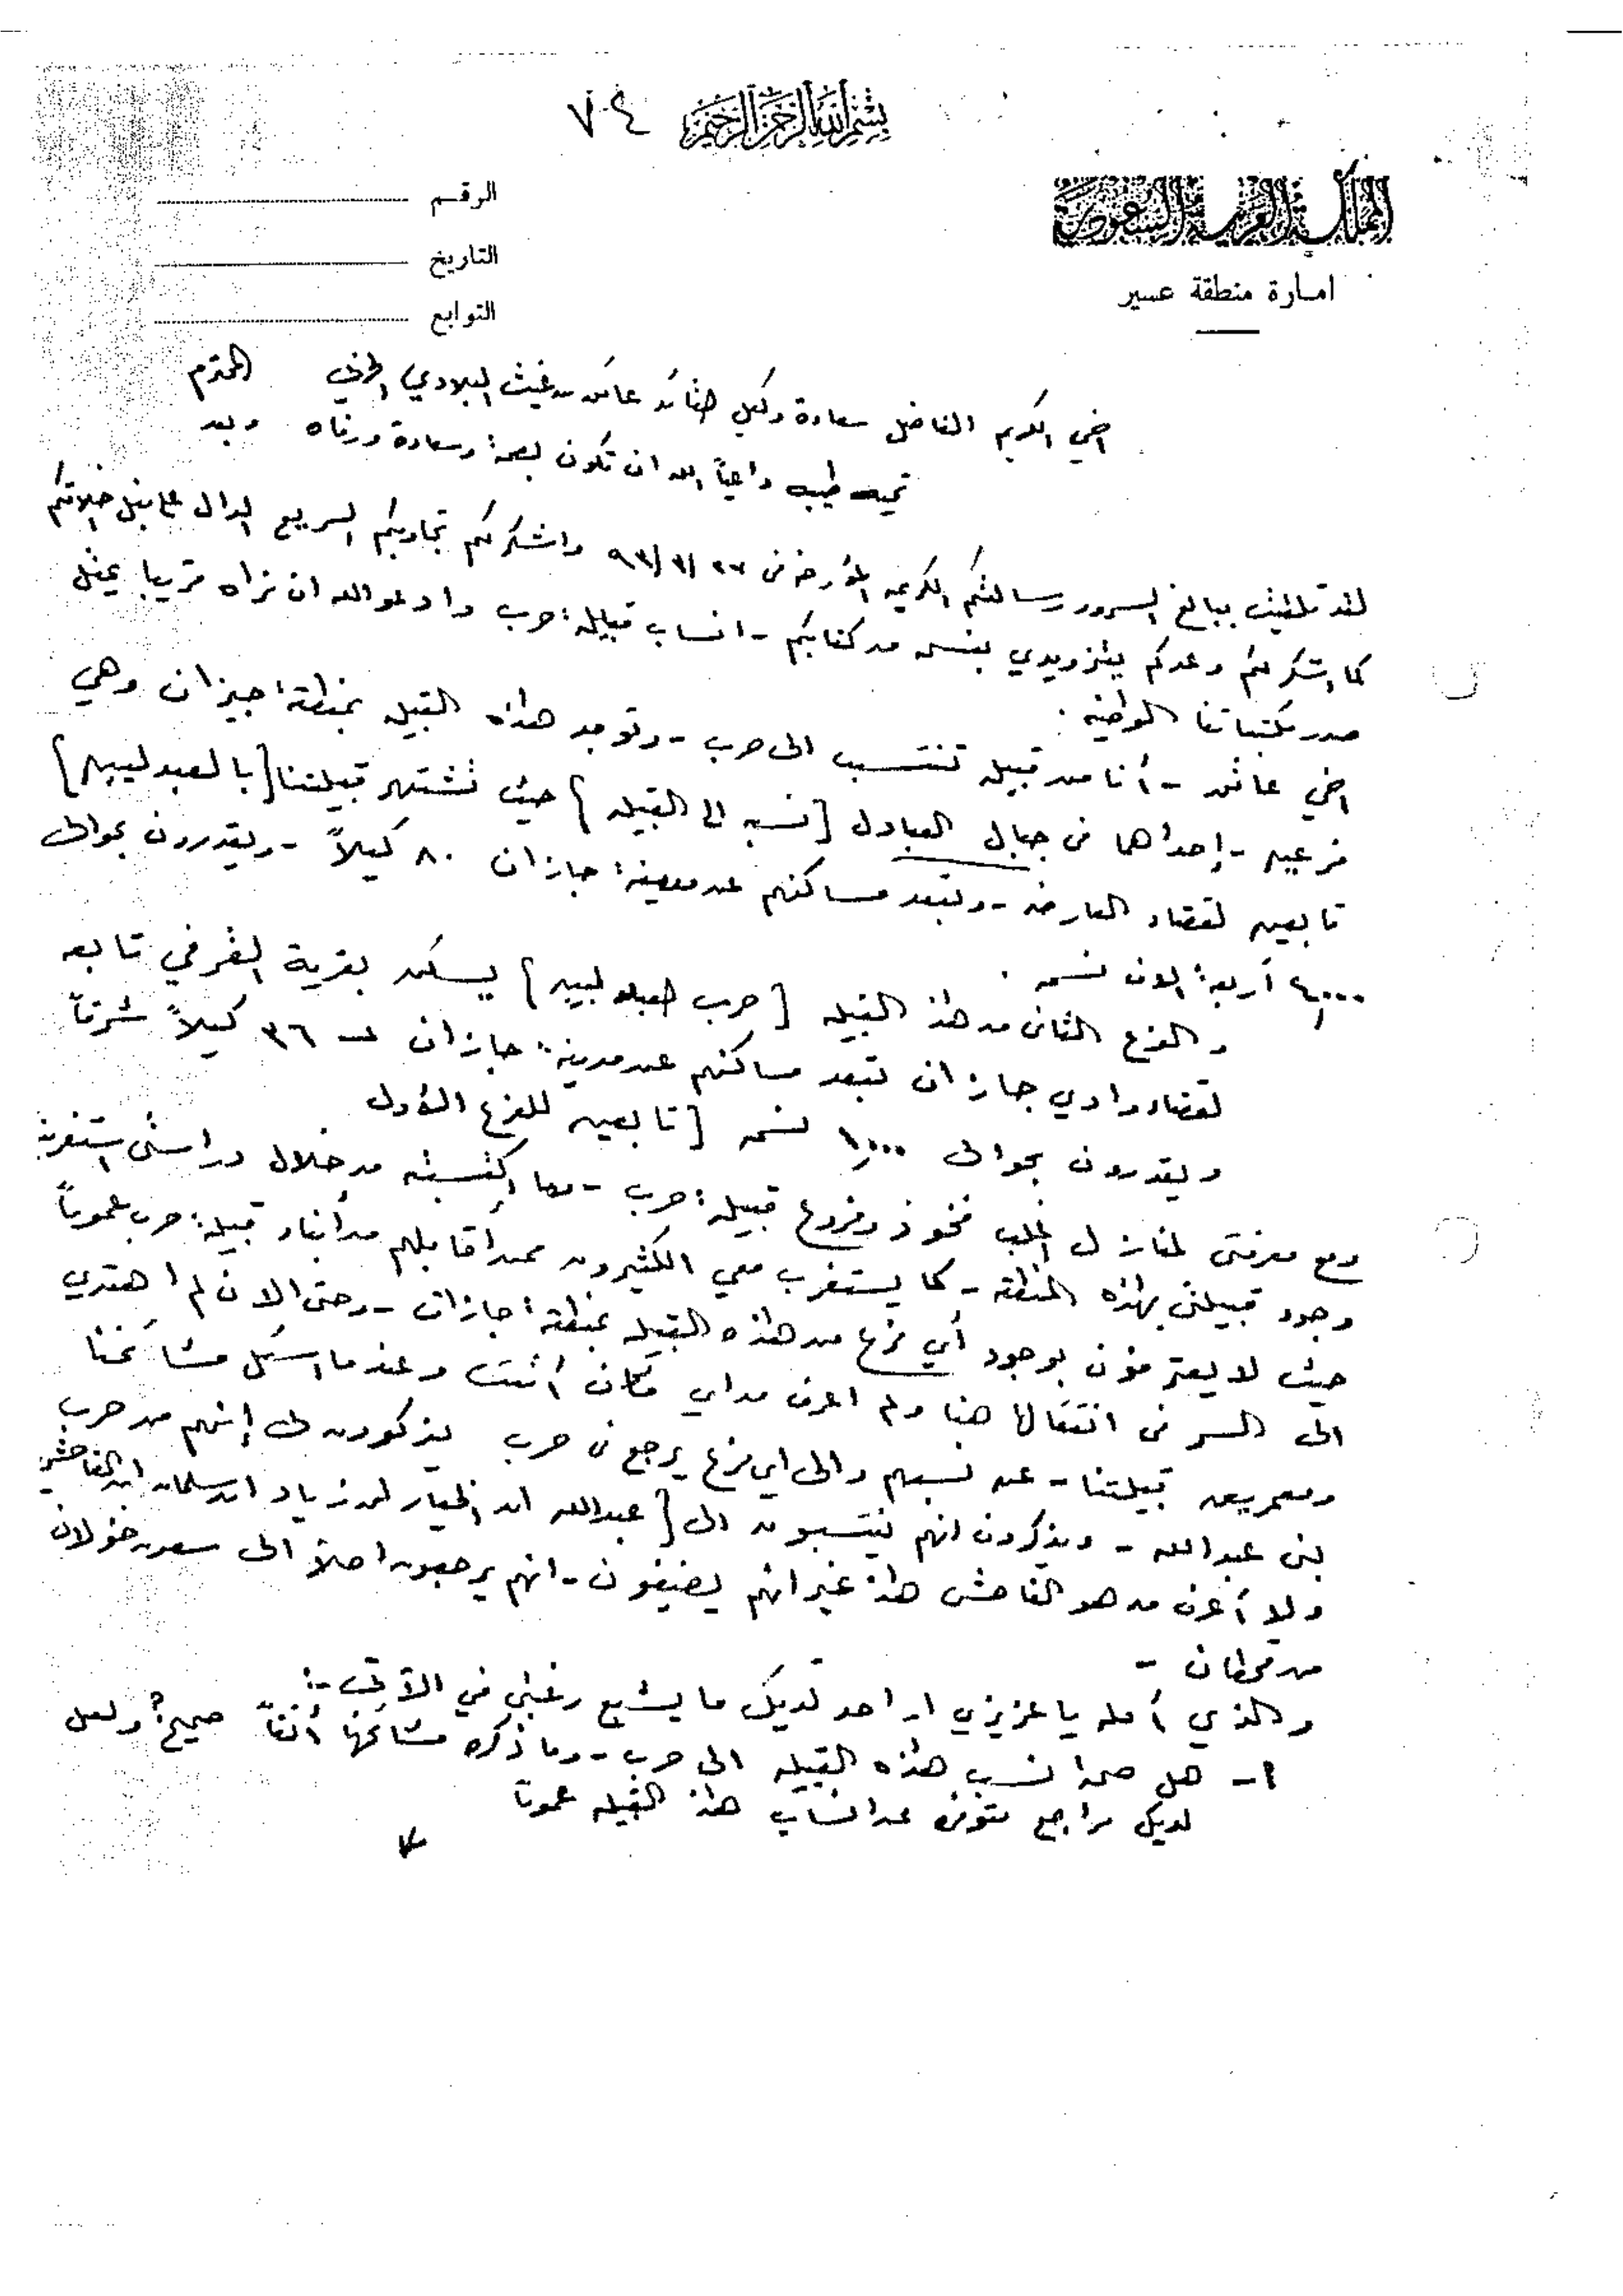 بسم الله الرحمن الرحيم
٧٠٤
المملكة العربية السعودية
امارة منطقة عسير
الرقم
التاريخ
التوابع
اخي الكريم الفاضل سعادة وكيل عاتق بن غيث البلادي الحربي المحترم
تحيه طيبه داعياً الله ان تكون بصحة وسعادة ورفاه وبعد
لقد تلقيت ببالغ السرور رسالتكم الكريمه المؤرخه في ٩٣/ واشكر لكم تجاوبكم السريع الدال على نبل
كما اشكر لكم وعدكم بتزويدي بنسخه من كتابكم - انساب قبيلة حرب وادعو الله ان نراه قريبا يحتل
صدر مكتباتنا الوطنيه .
اخي عاتق - أنا من قبيله تنتسب الى حرب - وتوجد هذه القبيله بمنطقة جيزان وهي
فرعين - إحداهما في جبال العبادل [نسبه الى القبيله] حيث تشتهر قبيلتنا [بالعبدليين]
تابعين لقضاء العارضه - وتبعد مساكنهم عن مدينة جازان ٨٠ كيلاً - ويقدرون بحوالى
٤,٠٠٠ أربعة الاف نسمه .
والفرع الثاني من هذه القبيله [حرب] يسكن بقرية الغرفي تابعه
لقضاء وادي جازان تبعد مساكنهم عن مدينة جازان ٣٦ كيلاً شرقاً
ويقدرون بحوالى ١,٠٠٠ نسمه [تابعين للفرع الأول
ومع معرفتي لمنازل اغلب فخوذ وفروع قبيلة حرب - مما اكتسبته من خلال دراستي استغرب
وجود قبيلتي بهذه المنطقه - كما يستغرب معي الكثيرون ممن أقابلهم من أبناء قبيلة حرب عموماً
حيث لا يعترفون بوجود أي فرع من هذه القبيله بمنطقة جازان - وحتى الان لم اهتدي
الى السر في انتقالها هنا ولم اعرف من اي مكان أتت وعندما اسئل مشائخنا
ومعمرين قبيلتنا - عن نسبهم والى اي فرع يرجع في حرب يذكرون لي إنهم من حرب
بني عبدالله - ويذكرون انهم ينتسبون الى [عبدالله ابن الخيار ابن زياد ابن سلمان ابن الفاحش
ولا أعرف من هو الفاحش هذا غير انهم يضيفون - انهم يرجعون اصلاً الى خولان
من قحطان -
والذي آمله يا عزيزي ان اجد لديك ما يشبع رغبتي في الآتي :-
١- هل صحة نسب هذه القبيله الى حرب - وما ذكره مشائخها أنفاً صحيح؟ ولعل
لديك مراجع متوفره عن انساب هذه القبيله عموماً